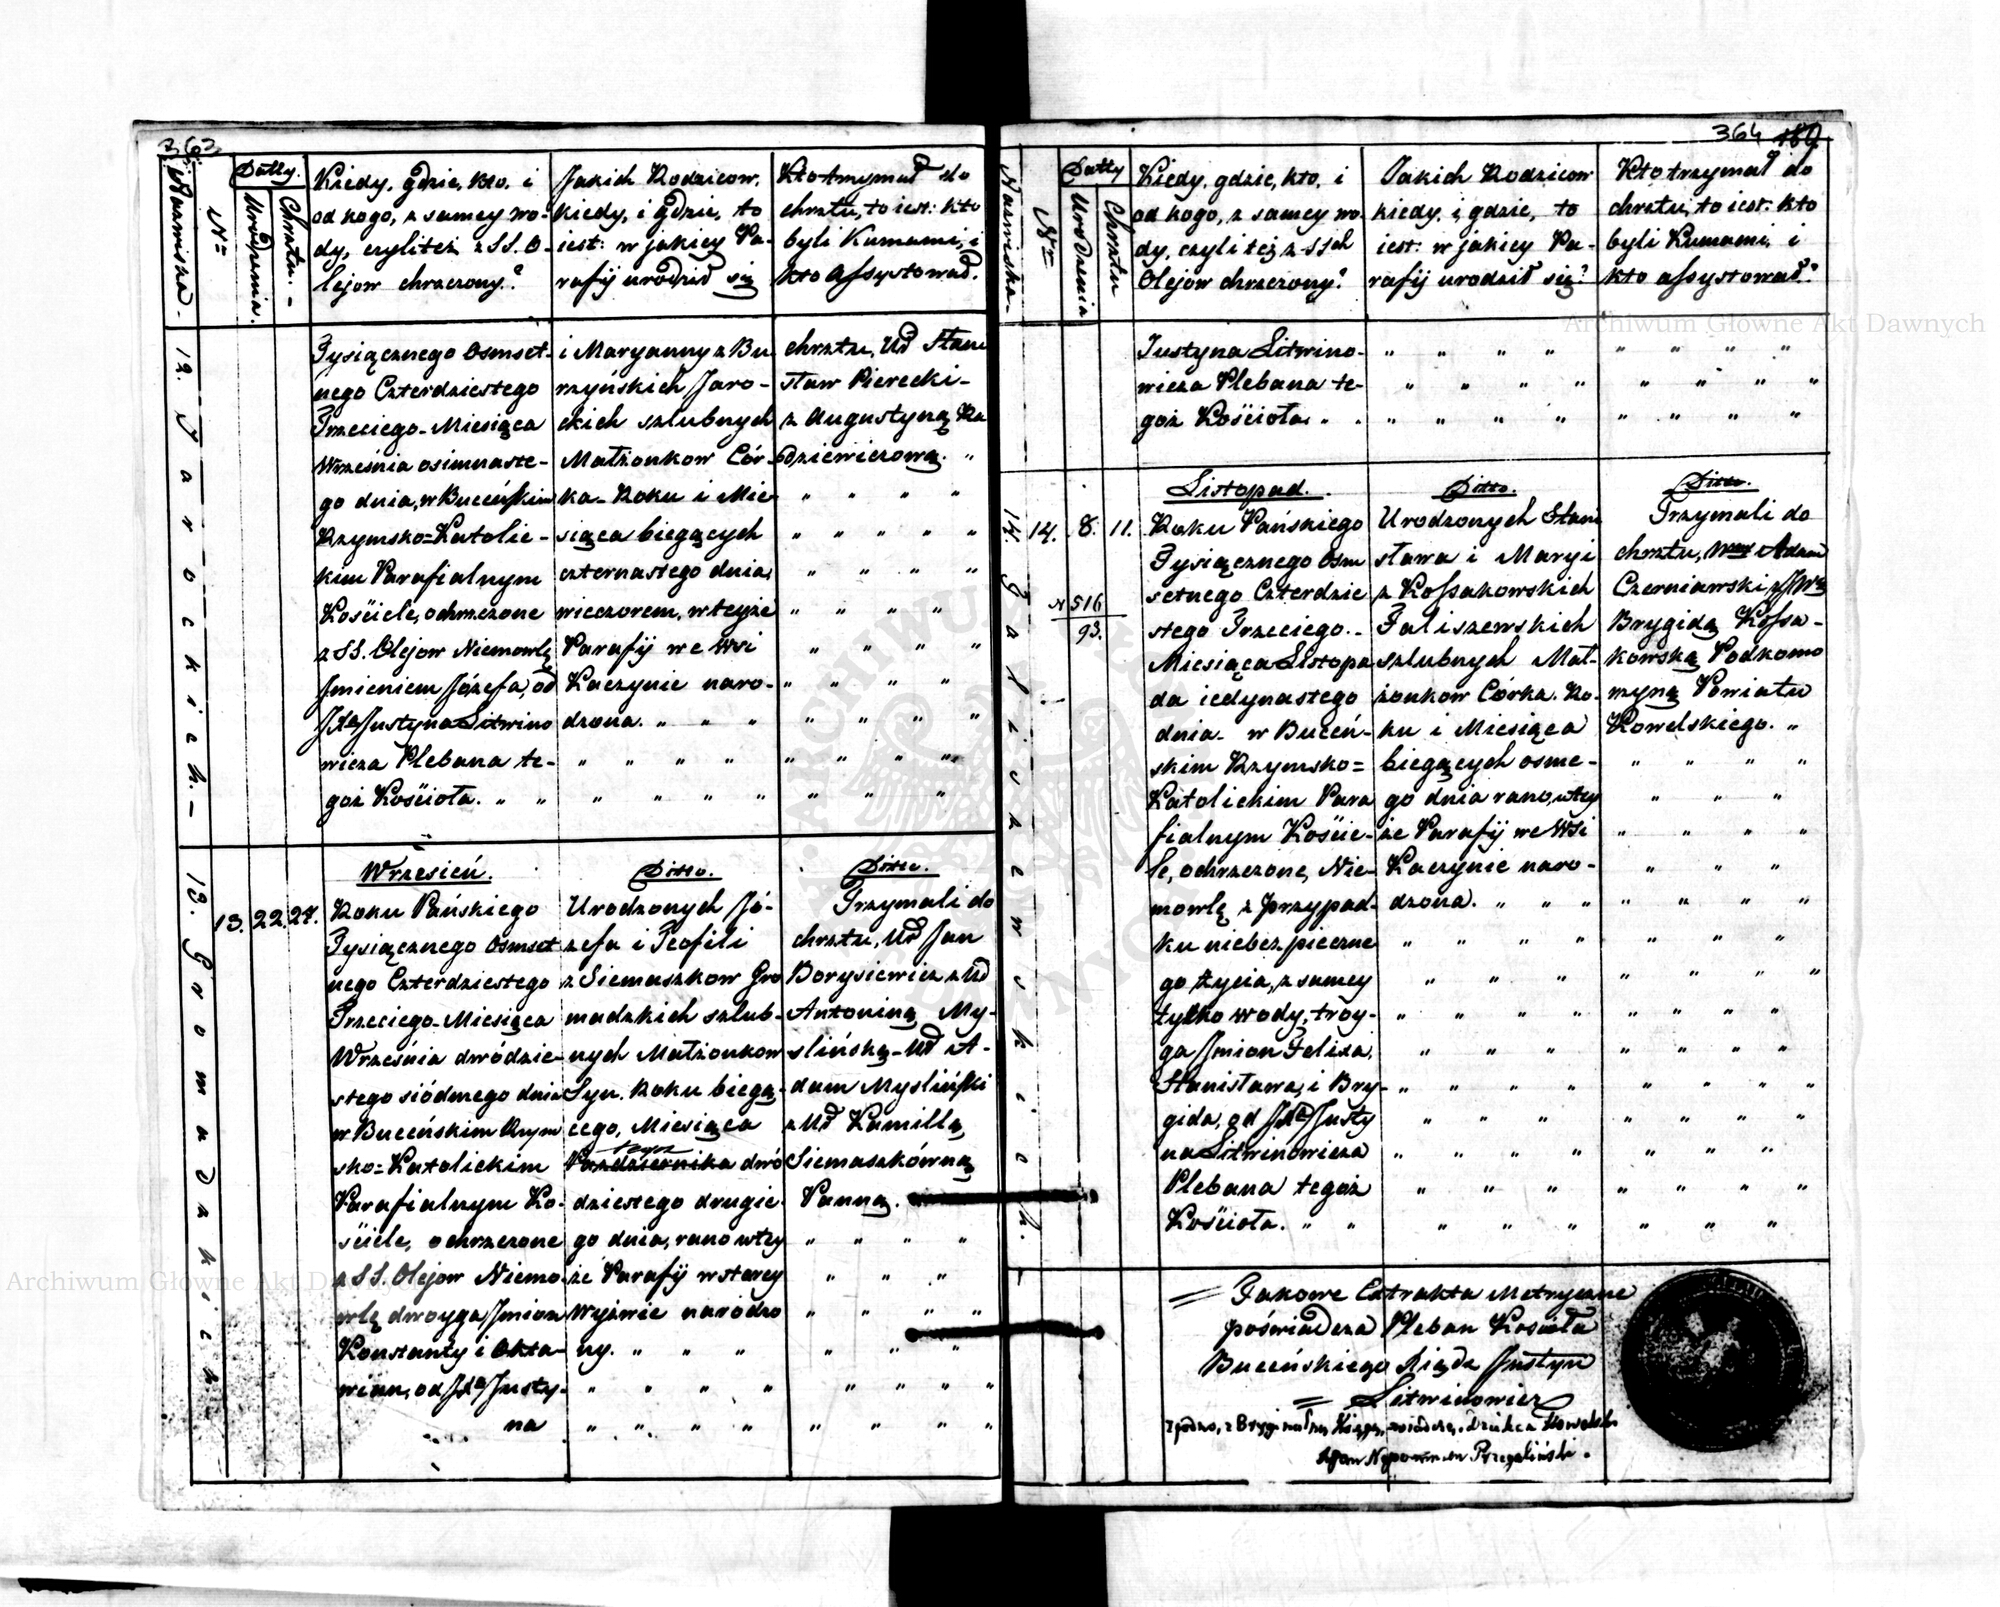 363
Nazwiska.
Nr
Datty.
Urodzenia.
Chrztu.
Kiedy, gdzie, kto, i
od kogo, z samey wo-
dy, czyli też z SS. O-
lejow chrzczony?
Jakich Rodzicow,
kiedy, i gdzie, to
iest: w jakiey Pa-
rafij urodził się
Kto trzymał do
chrztu, to iest: kto
byli Kumami, i
kto assystował.
12. Jarockich.
Tysiącznego Osmset-
nego Czterdziestego
Trzeciego Miesiąca
Września osimnaste-
go dnia, w Buceńskim
Rzymsko=Katolic-
kim Parafialnym
Kościele, ochrzczone
z SS. Olejow Niemowlę
Imieniem Józefa, od
JXa Justyna Litwino
wicza Plebana te-
goż Kościoła. " "
i Maryanny z Bu
rzyńskich Jaro-
ckich szlubnych
Małżonkow Cór-
ka Roku i Mie
siąca biegących
czternastego dnia,
wieczorem, w teyże
Parafij we Wsi
Kaczynie naro-
dzona. " " "
chrztu, Ud Stani
sław Pierecki-
z Augustyną Ra
dziewiczową. "
13. Gromadzkich.
13. 22. 27.
Wrzesień.
Roku Pańskiego
Tysiącznego Osmset
nego Czterdziestego
Trzeciego Miesiąca
Września dwódzie-
stego siódmego dnia
w Buceńskim Rzym
sko=Katolickim
Parafialnym Ko-
ściele, ochrzczone
z SS. Olejow Niemo-
wlę dwoyga Imion
Konstanty i Okta-
wian, od JXa Justy-
na
Ditto.
Urodzonych Jó-
zefa i Teofili
z Siemaszkow Gro
madzkich szlub-
nych Małżonkow
Syn. Roku biegą-
cego, Miesiąca
tegoż
Pazdziernika dwó
dziestego drugie
go dnia, rano w tey
że Parafij w starey
Wyżwie narodzo
ny. " " "
Ditto.
Trzymali do
chrztu, Ud Jan
Borysiewicz z Ud
Antoniną My-
slińską - Ud A-
dam Mysliński
z Ud Kamillą
Siemaszkówną
Panną.
364 180
Nazwiska.
Nr
Datty
Urodzenia
Chrztu
Kiedy, gdzie, kto, i
od kogo, z samey wo
dy, czyli też z SSch
Olejow chrzczony?
Jakich Rodzicow
kiedy, i gdzie, to
iest: w jakiey Pa-
rafij urodził się?
Kto trzymał do
chrztu, to iest: kto
byli Kumami, i
kto assystował?
Justyna Litwino-
wicza Plebana te-
goż Kościoła. " "
14. Faliszewskich.
14. 8. 11.
N 516
93.
Listopad.
Roku Pańskiego
Tysiącznego Osm
setnego Czterdzie
stego Trzeciego.
Miesiąca Listopa
da iedynastego
dnia w Buceń-
skim Rzymsko=
Katolickim Para
fialnym Koście-
le, ochrzczone, Nie-
mowlę z przypad-
ku niebezpieczne
go życia, z samey
tylko wody, troy-
ga Imion Felixa,
Stanisława, i Bry-
gida, od JXa Justy
na Litwinowicza
Plebana tegoż
Kościoła. " "
Ditto.
Urodzonych Stani
sława i Maryi
z Kossakowskich
Faliszewskich
szlubnych Mał-
żonkow Córka. Ro-
ku i Miesiąca
biegących osme-
go dnia rano, w tey
że Parafij we Wsi
Kaczynie naro-
dzona. " " "
Ditto.
Trzymali do
chrztu, Adam
Czerniawski z JWą
Brygidą Kossa-
kowską Podkomo
rzyną Powiatu
Kowelskiego. "
Takowe Extrakta Metryczne
poświadcza Pleban Kościoła
Buceńskiego Xiądz Justyn
Litwinowicz
Archiwum Główne Akt Dawnych
Archiwum Główne Akt Dawnych